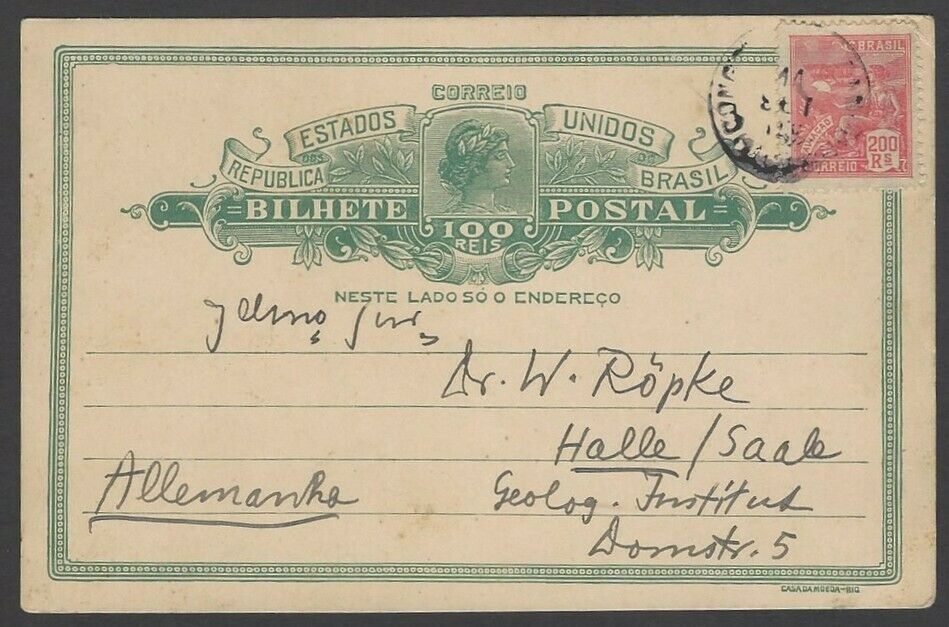 CORREIO
ESTADOS UNIDOS
DOS DO
REPUBLICA BRASIL
=BILHETE POSTAL=
100
REIS
NESTE LADO SÓ O ENDEREÇO
BRASIL
AVIAÇÃO
200
RS
CORREIO
Dr. W. Röpke
Halle / Saale
Allemanha
Geolog. Institut
Domstr. 5
CASA DA MOEDA-RIO